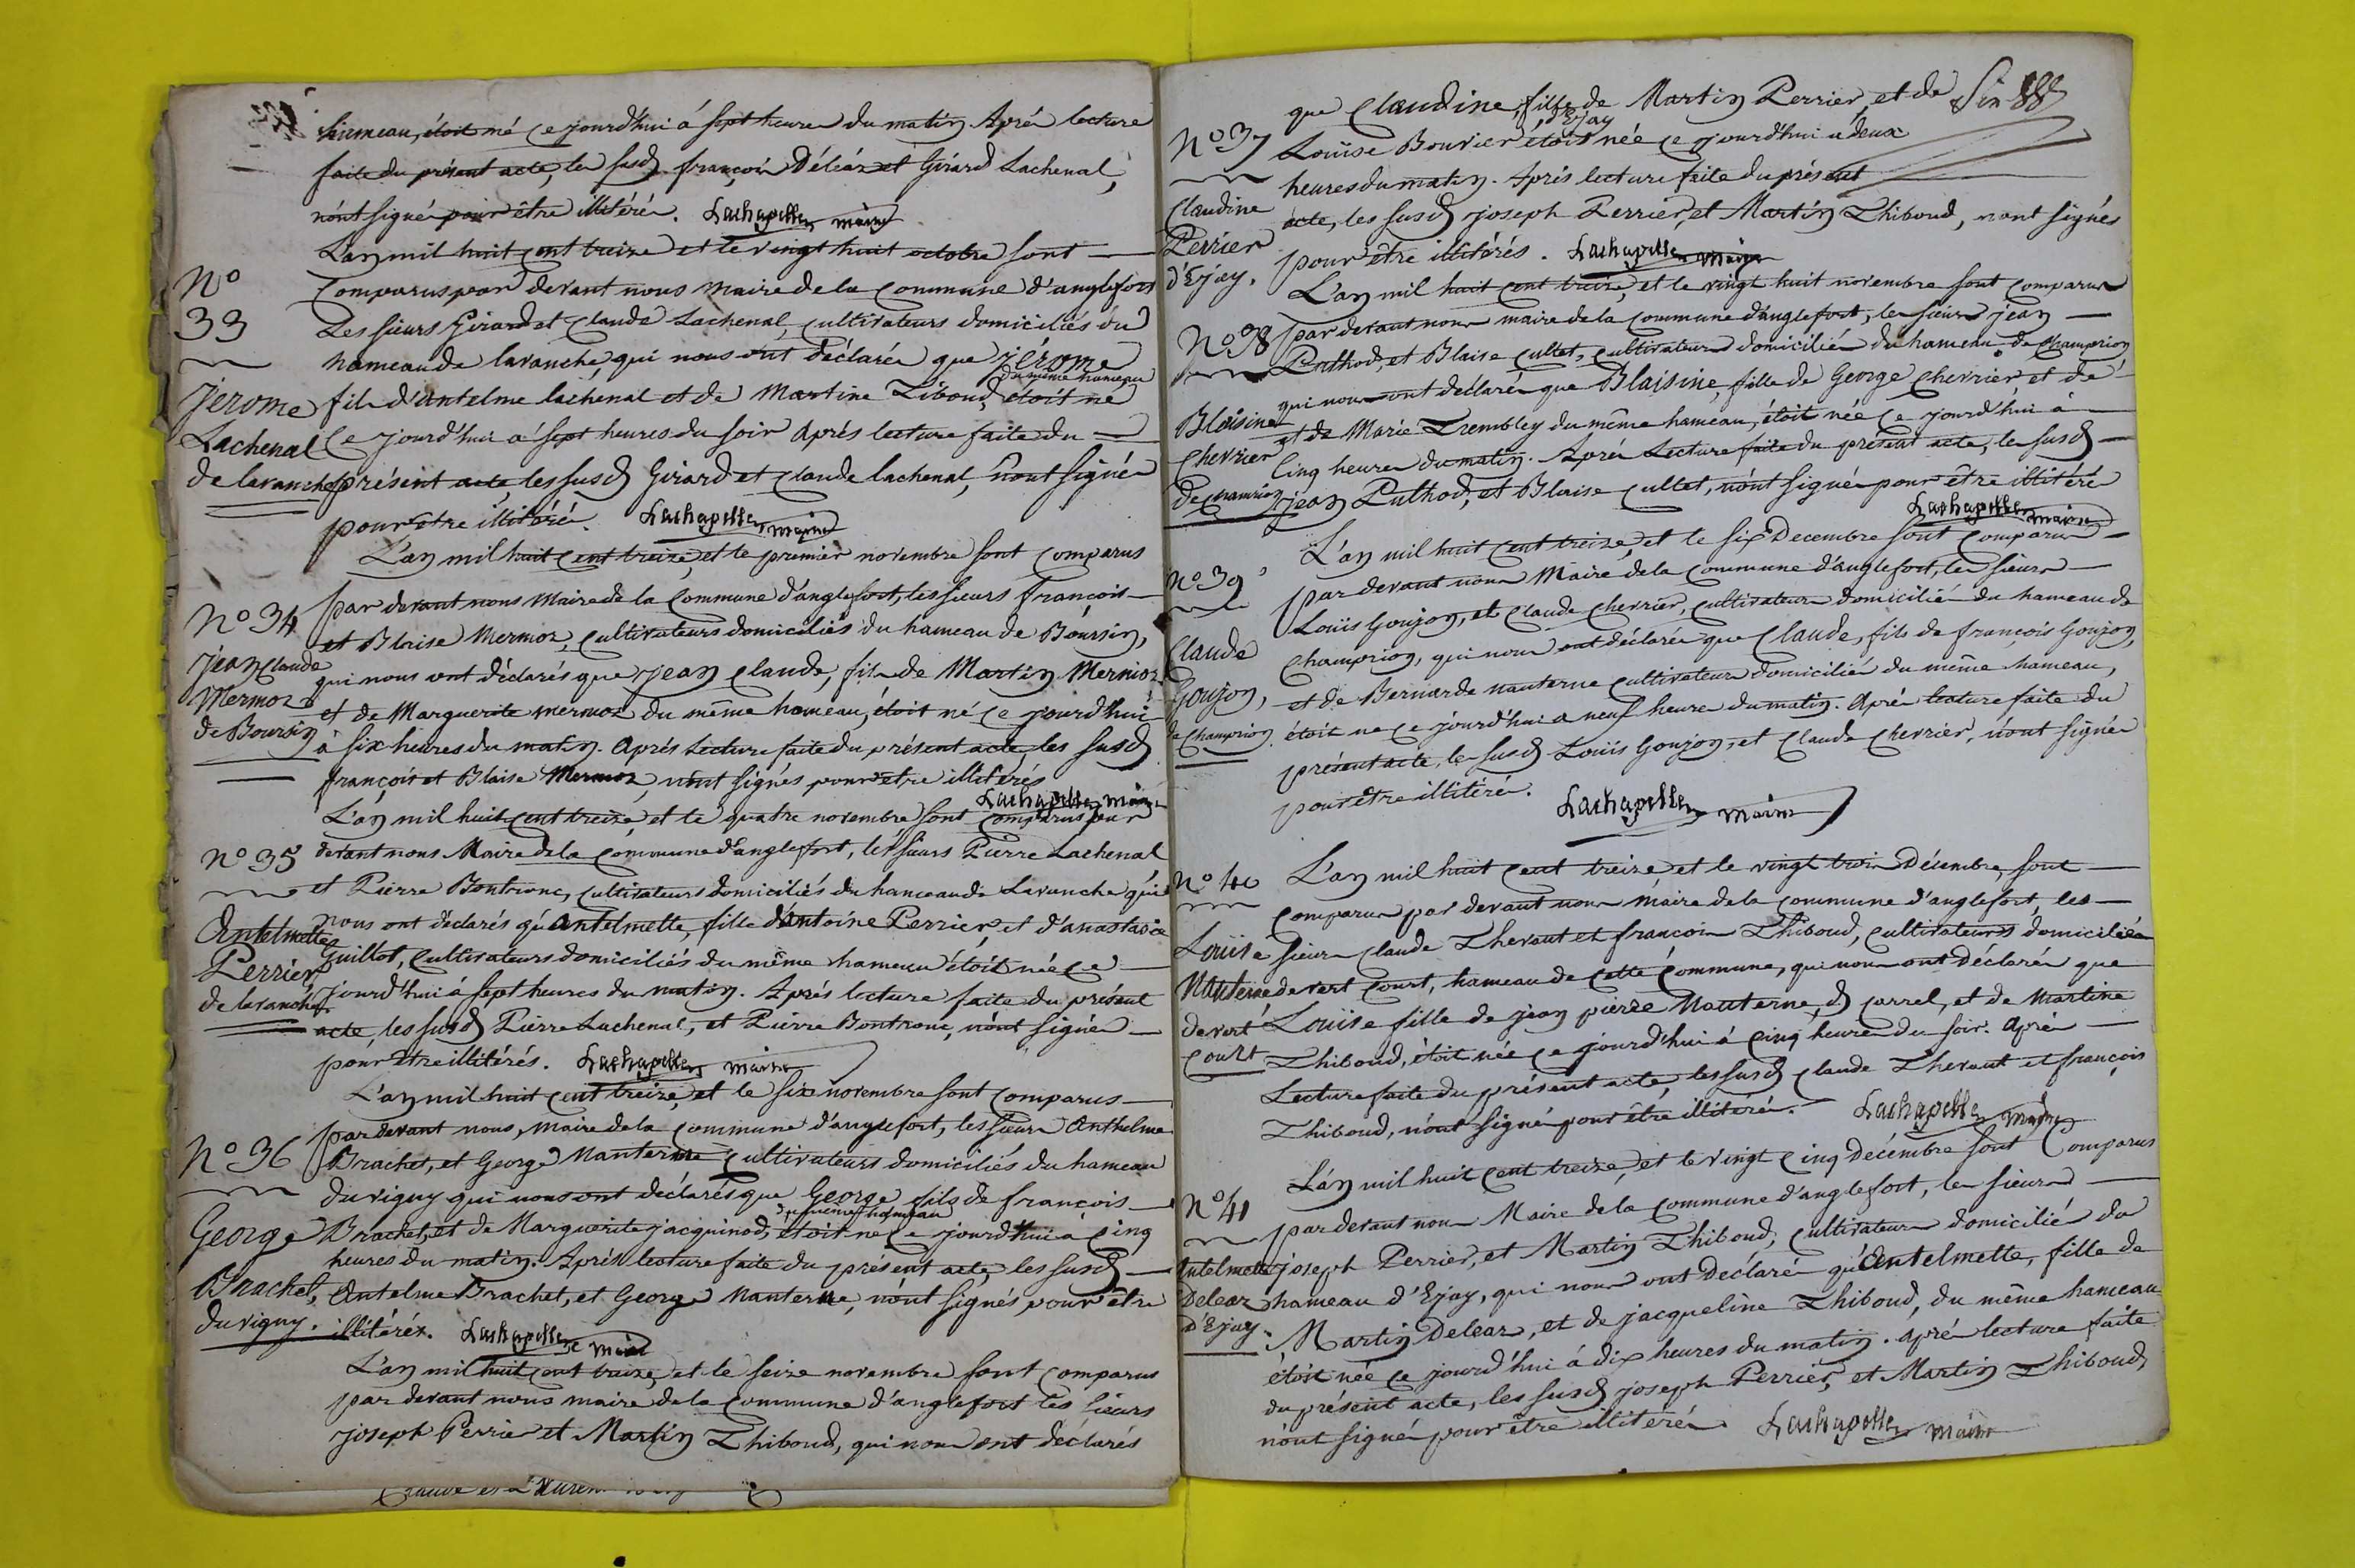 hameau, étoit né ce jourd'hui á sept heures du matin. Aprés lecture
faite du présent acte, les susd. françois Déléaz et Girard Lachenal,
n'ont signés pour être illitérés. Lachapelle maire
L'an mil huit cent treize et le vingt huit octobre sont
N° 33
comparus par devant nous maire de la commune d'anglefort
Les sieurs Girard et Claude Lachenal, cultivateurs domiciliés du
hameau de lavanche, qui nous ont déclarés que jérome
du même hameau
Jerome Lachenal de lavanche
fils d'antelme lachenal et de Martine Tiboud, étoit né
ce jourd'hui a sept heures du soir aprés lecture faite du
présent acte, les susd Girard et Claude lachenal, n'ont signés
pour être illitérés. Lachapelle maire
L'an mil huit cent treize, et le premier novembre sont comparus
N° 34
par devant nous Maire de la commune d'anglefort, les sieurs françois
et Blaise Mermoz, cultivateurs domiciliés du hameau de Boursin,
Jean Claude Mermoz de Boursin
qui nous ont déclarés que jean claude, fils de Martin Mermoz
et de Marguerite mermoz du même hameau, étoit né ce jourd'hui
à six heures du matin. Aprés lecture faite du présent acte, les susd
françois et Blaise Mermoz, n'ont signés pour être illitérés
Lachapelle maire
L'an mil huit cent treize, et le quatre novembre sont comparus par
N° 35
devant nous Maire de la commune d'anglefort, les sieurs Pierre Lachenal
et Pierre Bontronc, cultivateurs domiciliés du hameau de Lavanche qui
Antelmette Perrier, de lavanche
nous ont déclarés qu'antelmette, fille d'antoine Perrier, et d'anastasie
Guillot, cultivateurs domiciliés du même hameau étoit née ce
jourd'hui á sept heures du matin. Aprés lecture faite du présent
acte, les susd Pierre Lachenal, et Pierre Bontronc, n'ont signés
pour être illitérés. Lachapelle maire
L'an mil huit cent treize, et le six novembre sont comparus
N° 36
par devant nous, maire de la commune d'anglefort, les sieurs Anthelme
Brachet, et George Nanterne cultivateurs domiciliés du hameau
du vigny qui nous ont déclarés que George fils de françois
du même hameau
George Brachet, du vigny.
Brachet, et de Marguerite jacquinod, étoit né ce jourd'hui à cinq
heures du matin. Aprés lecture faite du présent acte, les susd
Antelme Brachet, et George Nanterne, n'ont signés pour être
illitérés. Lachapelle maire
L'an mil huit cent treize, et le seize novembre sont comparus
par devant nous maire de la commune d'anglefort les sieurs
joseph Perrier et Martin Thiboud, qui nous ont déclarés
que Claudine, fille de Martin Perrier, et de
d'Ejay
N° 37
Louise Bouvier étoit née ce jourd'hui a deux
heures du matin. Aprés lecture faite du présent
Claudine Perrier d'Ejay.
acte, les susd joseph Perrier, et Martin Thiboud, n'ont signés
pour être illitérés. Lachapelle maire
L'an mil huit cent treize, et le vingt huit novembre sont comparus
N° 38
par devant nous maire de la commune d'anglefort, les sieurs jean
Puthod, et Blaise Cultet, cultivateurs domiciliés du hameau de Champrion
Blaisine Chevrier de Champrion
qui nous ont déclarés que Blaisine, fille de George Chevrier et de
et de Marie Trembley du même hameau, étoit née ce jourd'hui à
Cinq heures du matin. Aprés Lecture faite du présent acte, les susd
jean Puthod, et Blaise Cultet, n'ont signés pour être illitérés
Lachapelle maire
L'an mil huit cent treize, et le six Decembre sont comparus
N° 39
par devant nous Maire de la commune d'anglefort, les sieurs
Louis Goujon, et Claude Chevrier, cultivateurs domiciliés du hameau de
Claude Goujon, de Champrion.
Champrion, qui nous ont déclarés que Claude, fils de françois Goujon,
et de Bernarde nanterne cultivateurs domiciliés du même hameau,
étoit né ce jourd'hui a neuf heures du matin. Aprés lecture faite du
présent acte, les susd Louis Goujon, et Claude Chevrier, n'ont signés
pour être illitérés. Lachapelle maire
N° 40
L'an mil huit cent treize et le vingt trois Décembre, sont
comparus par devant nous maire de la commune d'anglefort, les
Louise Nanterne de vert court
sieurs Claude Thevant et françois Thiboud, cultivateurs domiciliés
de vert court, hameau de cette commune, qui nous ont déclarés que
Louise fille de jean pierre Nanterne, d carrel, et de Martine
Thiboud, étoit née ce jourd'hui á cinq heures du soir. Aprés
Lecture faite du présent acte, les susd Claude Thevant et françois
Thiboud, n'ont signés pour être illitérés. Lachapelle maire
L'an mil huit cent treize, et le vingt cinq Décembre sont Comparus
N° 41
par devant nous Maire de la commune d'anglefort, les sieurs
Antelmette Deleaz d'Ejay.
joseph Perrier, et Martin Thiboud, cultivateurs domiciliés du
hameau d'Ejay, qui nous ont déclarés qu'Antelmette, fille de
Martin Deleaz, et de jacqueline Thiboud, du même hameau
étoit née ce jourd'hui á dix heures du matin. aprés lecture faite
du présent acte, les susd joseph Perrier, et Martin Thiboud,
n'ont signés pour être illitérés Lachapelle maire